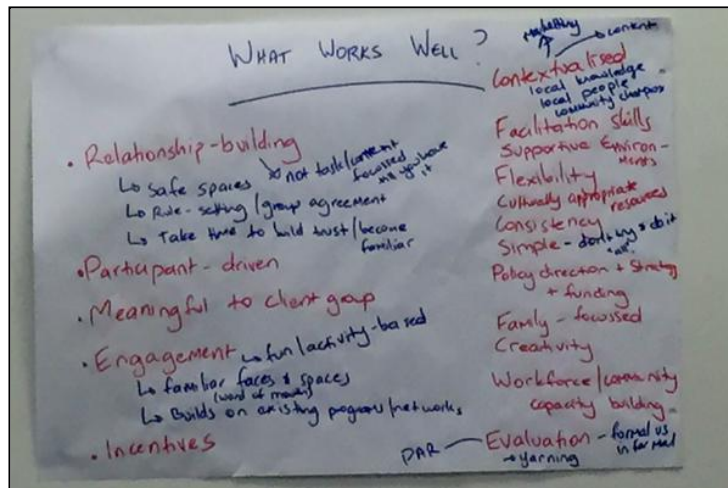 WHAT WORKS WELL?
• Relationship-building
↘ not task/content
focussed
till you have
it
↳ safe spaces
↳ Rule-setting/group agreement
↳ Take time to build trust/become
familiar
• Participant-driven
• Meaningful to client group
• Engagement ↳ fun/activity-based
↳ familiar faces & spaces
(word of mouth)
↳ Builds on existing programs/networks
• Incentives
Marketing
content
Contextualised
local knowledge
local people
community champs
Facilitation Skills
Supportive Environ-
ments
Flexibility
Culturally appropriate
resources
Consistency
Simple - don't try & do it
"all"
Policy direction + Strategy
+ funding
Family-focussed
Creativity
Workforce/community
capacity building
PAR — Evaluation - formal vs
informal
→ yarning